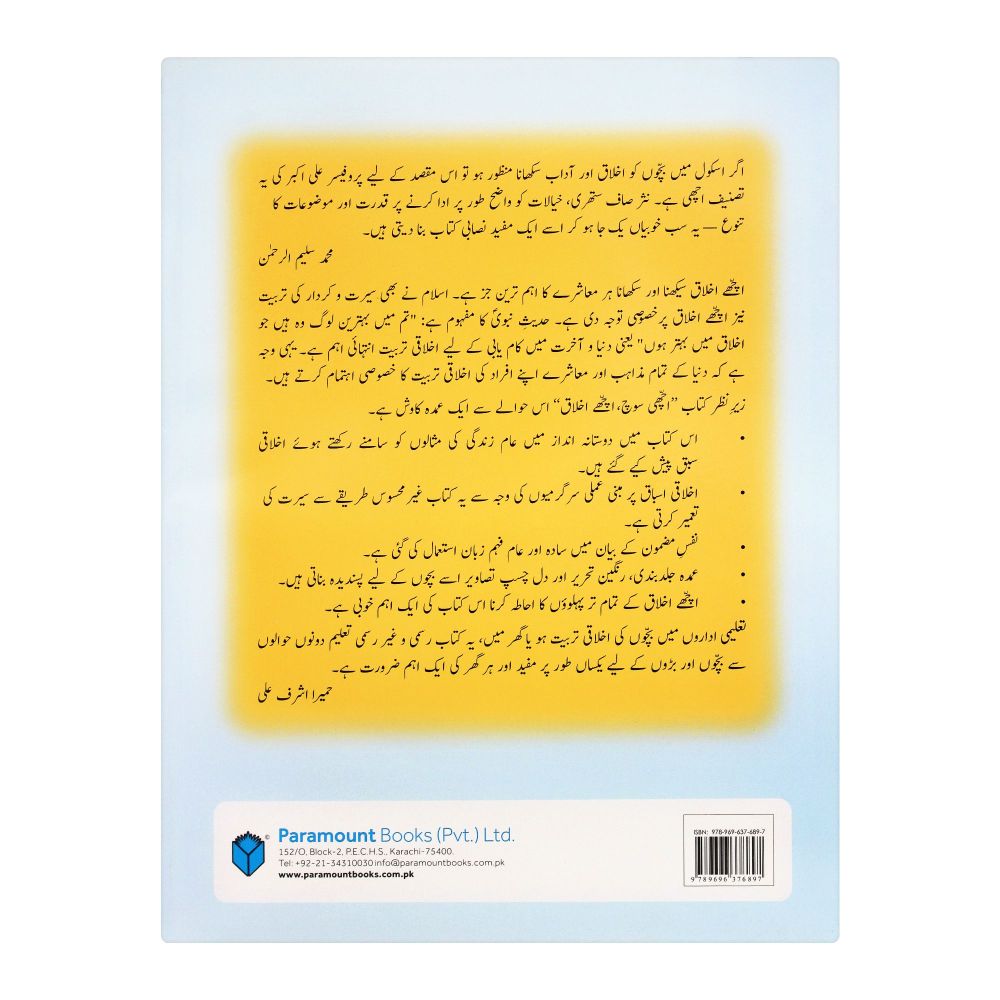 اگر اسکول میں بچّوں کو اخلاق اور آداب سکھانا منظور ہو تو اس مقصد کے لیے پروفیسر علی اکبر کی یہ
تصنیف اچھی ہے۔ نثر صاف ستھری، خیالات کو واضح طور پر ادا کرنے پر قدرت اور موضوعات کا
تنوع — یہ سب خوبیاں یک جا ہو کر اسے ایک مفید نصابی کتاب بنا دیتی ہیں۔
محمد سلیم الرحمٰن
اچّھے اخلاق سیکھنا اور سکھانا ہر معاشرے کا اہم ترین جز ہے۔ اسلام نے بھی سیرت و کردار کی تربیت
نیز اچّھے اخلاق پر خصوصی توجہ دی ہے۔ حدیثِ نبویؐ کا مفہوم ہے: "تم میں بہترین لوگ وہ ہیں جو
اخلاق میں بہتر ہوں" یعنی دنیا و آخرت میں کام یابی کے لیے اخلاقی تربیت انتہائی اہم ہے۔ یہی وجہ
ہے کہ دنیا کے تمام مذاہب اور معاشرے اپنے افراد کی اخلاقی تربیت کا خصوصی اہتمام کرتے ہیں۔
زیرِ نظر کتاب "اچّھی سوچ، اچّھے اخلاق" اس حوالے سے ایک عمدہ کاوش ہے۔
• اس کتاب میں دوستانہ انداز میں عام زندگی کی مثالوں کو سامنے رکھتے ہوئے اخلاقی
سبق پیش کیے گئے ہیں۔
• اخلاقی اسباق پر مبنی عملی سرگرمیوں کی وجہ سے یہ کتاب غیر محسوس طریقے سے سیرت کی
تعمیر کرتی ہے۔
• نفسِ مضمون کے بیان میں سادہ اور عام فہم زبان استعمال کی گئی ہے۔
• عمدہ جلد بندی، رنگین تحریر اور دل چسپ تصاویر اسے بچوں کے لیے پسندیدہ بناتی ہیں۔
• اچّھے اخلاق کے تمام تر پہلوؤں کا احاطہ کرنا اس کتاب کی ایک اہم خوبی ہے۔
تعلیمی اداروں میں بچّوں کی اخلاقی تربیت ہو یا گھر میں، یہ کتاب رسمی و غیر رسمی تعلیم دونوں حوالوں
سے بچّوں اور بڑوں کے لیے یکساں طور پر مفید اور ہر گھر کی ایک اہم ضرورت ہے۔
حمیرا اشرف علی
©
Paramount Books (Pvt.) Ltd.
152/O, Block-2, P.E.C.H.S., Karachi-75400.
Tel: +92-21-34310030 info@paramountbooks.com.pk
www.paramountbooks.com.pk
ISBN: 978-969-637-689-7
9 789696 376897